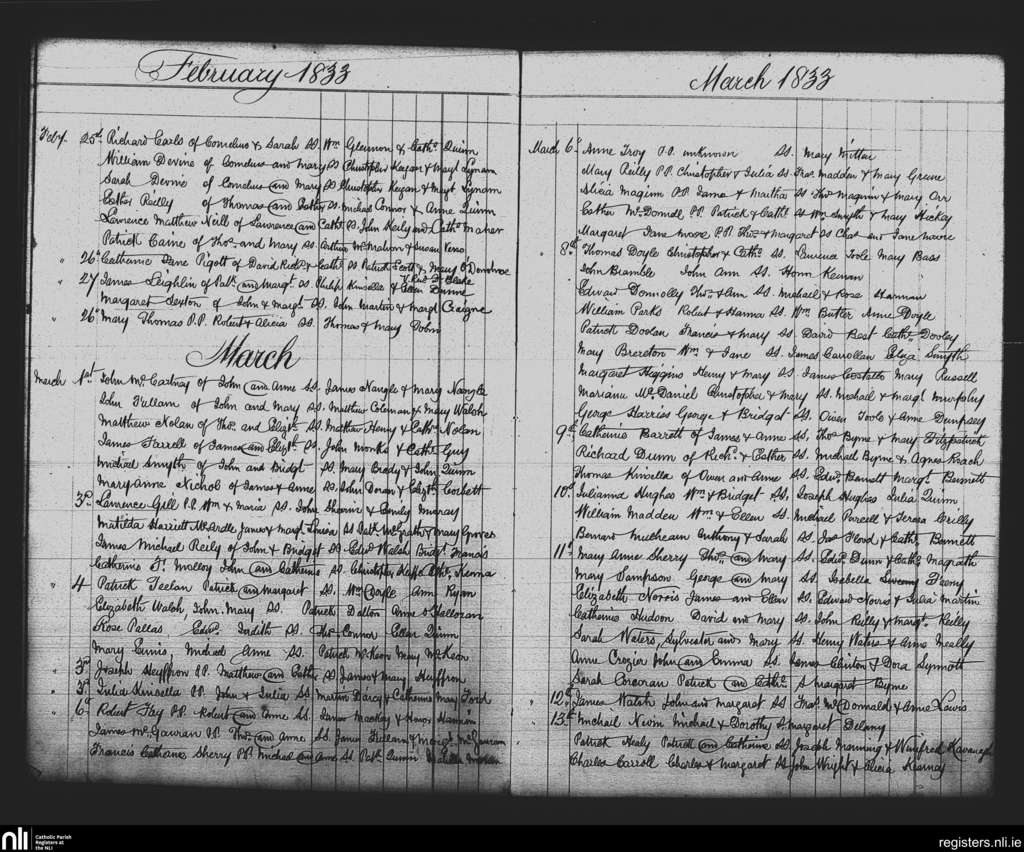 February 1833
Feby. 25th Richard Earls of Cornelius & Sarah SS. Wm Glennon & Cathe. Quinn
William Devine of Cornelius and Mary SS Christopher Keegan & Margt Lynam
Sarah Devine of Cornelius and Mary SS Christopher Keegan & Margt Lynam
Esther Reilly of Thomas and Esther SS. Michael Connor & Anne Quinn
Lawrence Matthew Neill of Lawrence and Cathe SS. John Kealy and Cathe Maher
Patrick Caine of Thos. and Mary SS. Arthur McMahon & Susan
" 26th Catherine Jane Pigott of David Richd. & Cathe SS Patrick Scott & Mary O'Donohoe
" 27 James Leighlin of Patk. and Margt. SS Philip Kinsella & Ellen Dunne
Margaret Sexton of John & Margt. SS John Martin & Margt Craigne
" 26th Mary Thomas P.P. Robert & Alicia SS. Thomas & Mary Dobin
March
March 1st John McCartney of John and Anne SS. James Nangle & Mary Nangle
John Fullam of John and Mary SS. Matthew Coleman & Mary Walsh
Matthew Nolan of Thos. and Elizth. SS. Matthew Henry & Cathe Nolan
James Farrell of James and Elizth SS. John Monks & Cathe Guy
Michael Smyth of John and Bridgt SS. Mary Brady & John Quinn
Mary Anne Nichol of James & Anne SS. John Doran & Elizth Corbett
" 3rd Lawrence Gill P.P. Wm & Maria SS. John & Emily Murray
Matilda Harriett McArdle James & Margt. Louisa SS Patk. McGrath & Mary Groves
James Michael Reily of John & Bridget SS. Edwd Walsh Bridgt. Francis
Catherine Molloy John and Catherine SS. Christopher Cathe. Kierna
" 4 Patrick Feelan Patrick and Margaret SS. Wm Doyle Ann Ryan
Elizabeth Walsh, John, Mary SS. Patrick Dalton Anne O'Halloran
Rose Pallas, Edwd. Judith SS. Thos. Connor Ellen Quinn
Mary Ennis, Michael Anne SS. Patrick McKeon Mary McKeon
" 3rd Joseph Heyffron P.P. Matthew and Esther SS James & Mary Heyffron
" 3rd Julia Kinsella P.P. John & Julia SS. Martin Darcy & Catherine Mary Ford
" 6th Robert Fay P.P. Robert and Anne SS. James Mackey & Honor Hannan
James McGauran P.P. Thos. and Anne SS. James & Margt. McGauran
Francis Catherine Sherry P.P. Michael and Anne SS Patk. Quinn
March 1833
March 6th Anne Troy P.P. unknown SS. Mary Mittar
Mary Reilly P.P. Christopher & Julia SS. Madden & Mary Greene
Alicia Maginn P.P. James & Martha SS Thos Maginn & Mary Orr
Esther McDonnell PP Patrick & Cathe SS Wm Smyth & Mary Hickey
Margaret Jane Moore P.P. Thos. & Margaret SS Chas and Jane Moore
" 8th Thomas Doyle Christopher & Cathe. SS. Toole Mary Bass
John Bramble John Ann SS. Honor Keenan
Edward Donnolly Thos. & Ann SS. Michael & Rose Hannan
William Parks Robert & Hanna SS. Wm. Butler Anne Doyle
Patrick Doolan Francis & Mary SS. David Best Cathe. Dooley
Mary Brereton Wm. & Jane SS. James Carrollan Eliza Smyth
Margaret Higgins Henry & Mary SS. James Costello Mary Russell
Mariana McDaniel Christopher & Mary SS. Michael & Margt Murphy
George Harriss George & Bridget SS. Owen Toole & Anne Dempsey
" 9th Catherine Barrett of James & Anne SS. Thos Byrne & Mary Fitzpatrick
Richard Dunn of Richd. & Esther SS. Michael Byrne & Agnes Roach
Thomas Kinsella of Owen and Anne SS. Edwd. Bennett & Margt. Bennett
" 10th Julianna Hughes Wm & Bridget SS. Joseph Hughes Julia Quinn
William Madden Wm. & Ellen SS. Michael Purcell & Teresa Crilly
Bernard Mulhearn Anthony & Sarah SS. Flood & Cathe. Bennett
" 11th Mary Anne Sherry Thos. and Mary SS. Edwd. Dunn & Cathe Magrath
Mary Sampson George and Mary SS. Isebella Sweeny Feeny
Elizabeth Norris James and Ellen SS. Edward Norris & Julia Martin
Catherine Hudson David and Mary SS. John Reilly & Margt. Reilly
Sarah Waters, Sylvester and Mary SS. Henry Waters & Anne Neally
Anne Crozier John and Emma SS. James Clinton & Dora Synnott
Sarah Corcoran Patrick and Cathe. S Margaret Byrne
" 12th James Walsh John and Margaret SS McDonnald & Anne Lewis
" 13th Michael Nixon Michael & Dorothy S Margaret Delany
Patrick Healy Patrick and Catherine SS Joseph Manning & Winifred Kavanagh
Charles Carroll Charles & Margaret SS John Wright & Alicia Kearney
nli Catholic Parish
Registers at
the NLI
registers.nli.ie